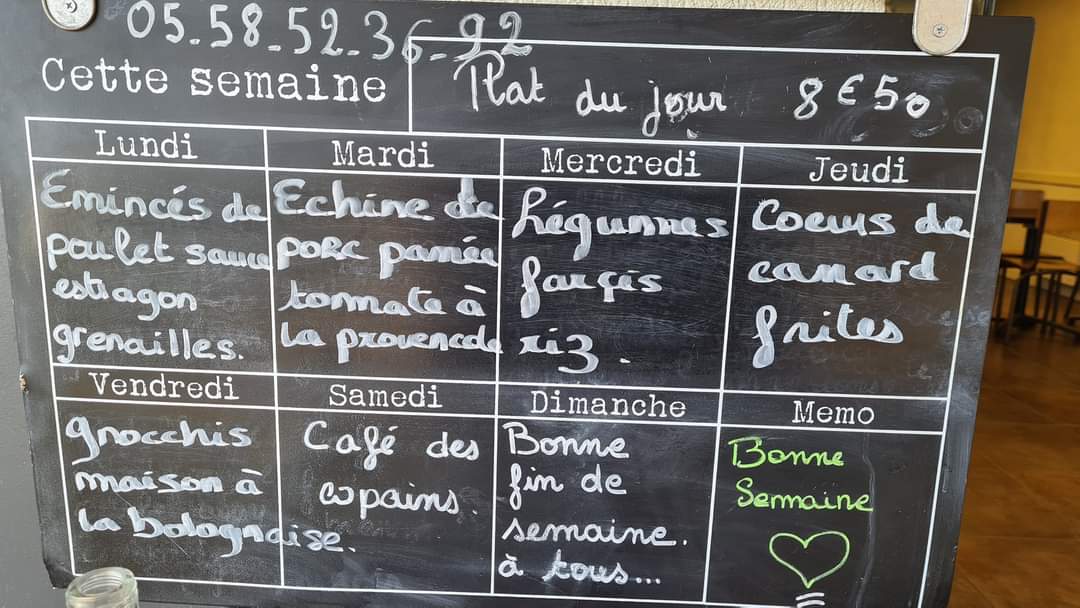 05.58.52.36-92
Cette semaine
Plat du jour 8€50
Lundi
Emincés de
poulet sauce
estragon
grenailles.
Mardi
Echine de
porc panée
tomate à
la provencale
Mercredi
Légumes
farçis
riz.
Jeudi
Coeurs de
canard
frites
Vendredi
gnocchis
maison à
la bolognaise.
Samedi
Café des
copains.
Dimanche
Bonne
fin de
semaine.
à tous...
Memo
Bonne
Semaine